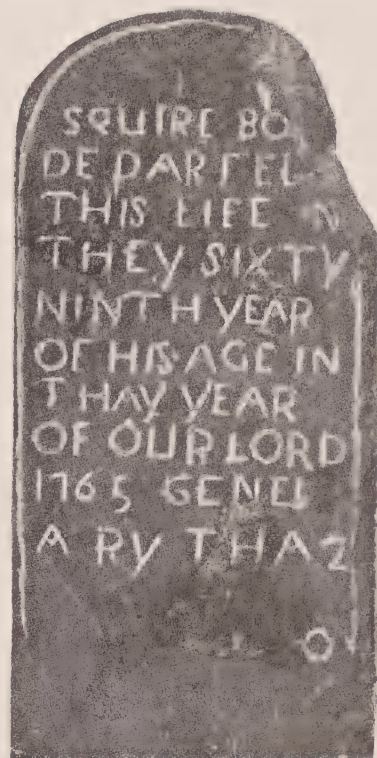 SQUIRE BO
DE PARTEL
THIS LIFE IN
THEY SIXTY
NINTH YEAR
OF HIS AGE IN
THAY YEAR
OF OUR LORD
1765 GENEU
A RY THA 2
O